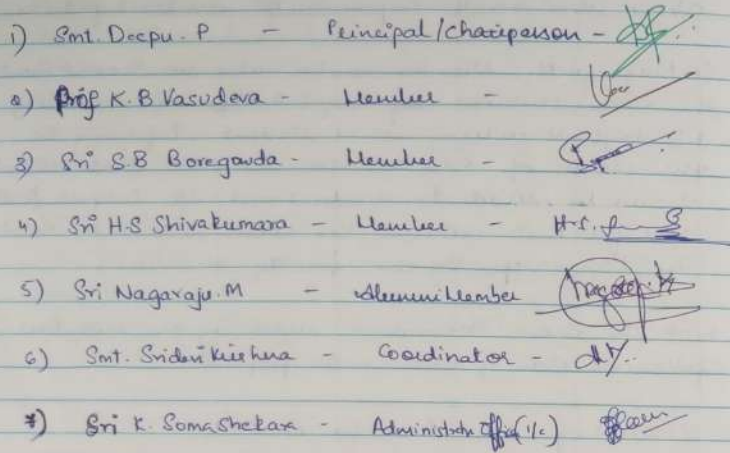 1) Smt. Deepu. P - Principal/Chairperson -
2) Prof K.B Vasudeva - Member -
3) Sri S.B Boregowda - Member -
4) Sri H.S Shivakumara - Member - H.S.
5) Sri Nagaraju. M - Alumni Member
6) Smt. Sridevi Krishna - Coordinator -
7) Sri K. Somashekara - Administrative Officer (I/c)